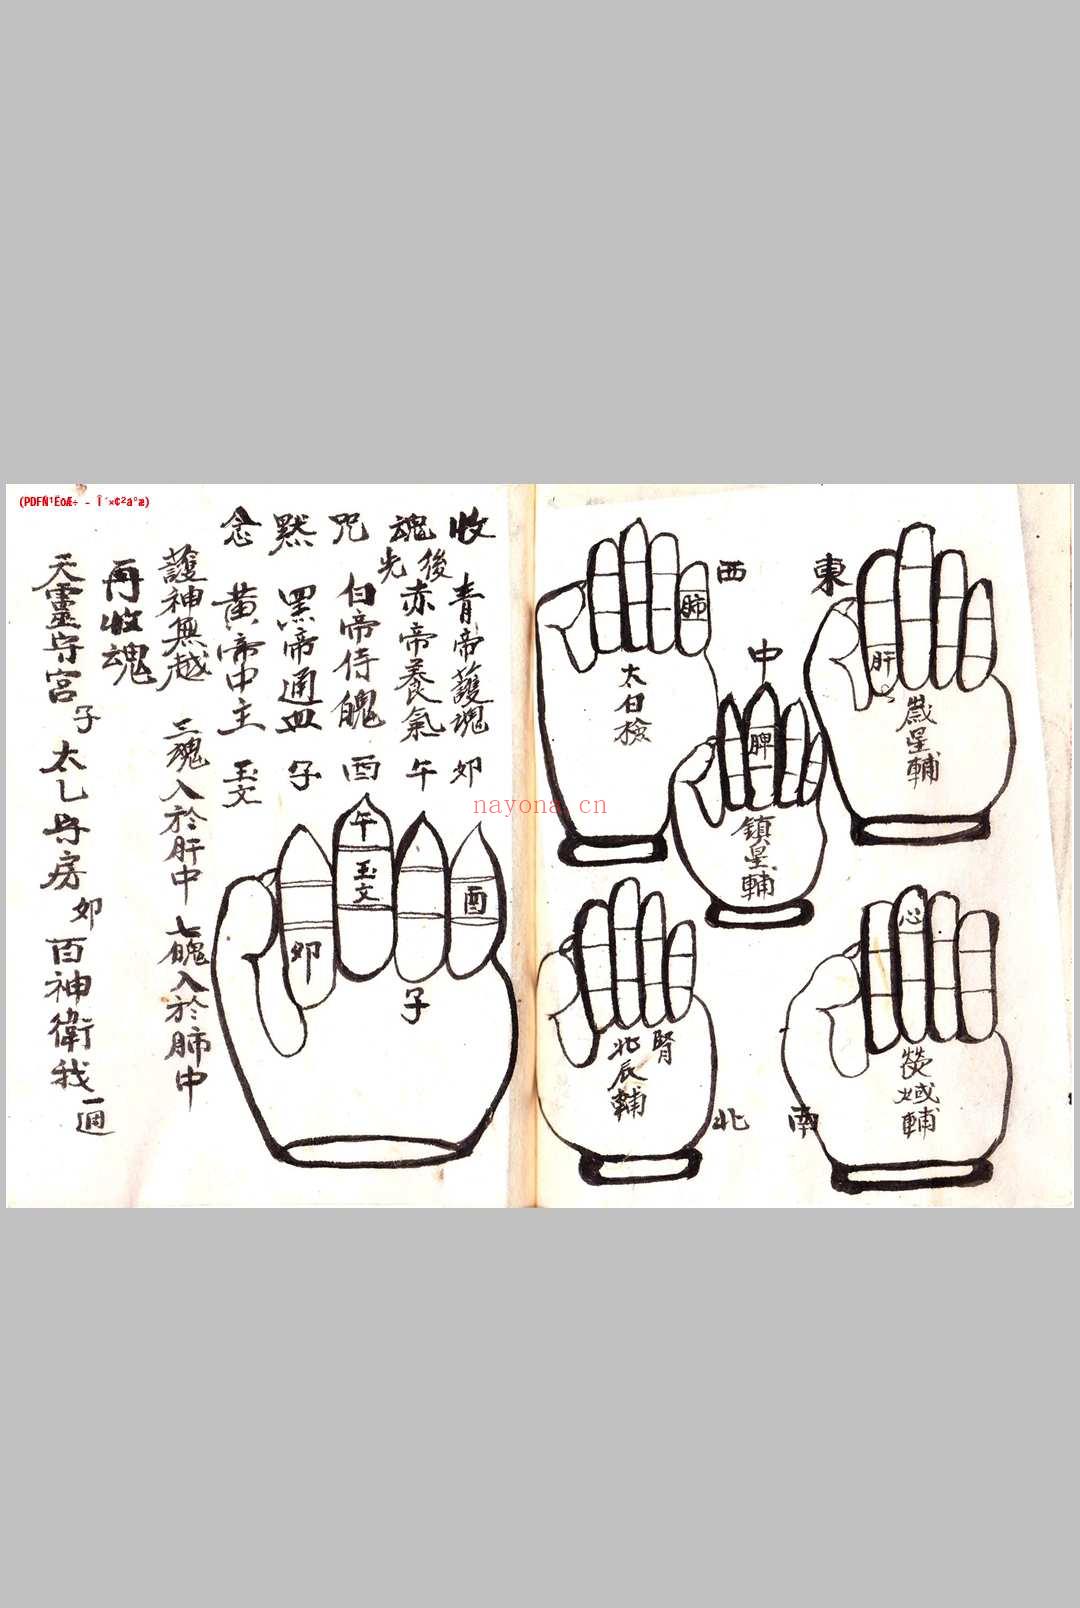 (PDFÑ¹ËõÆ÷ - Î´×¢²á°æ)
東
肝
歲星輔
中
脾
鎮星輔
西
肺
太白檢
南
心
熒惑輔
北
腎
北辰輔
收魂咒默念
後先
青帝護魂 卯
赤帝養氣 午
白帝侍魄 酉
黑帝通血 子
黃帝中主 玉文
午
玉文
酉
卯
子
護神無越 三魂入於肝中 七魄入於肺中
再收魂
天靈守宮 子 太乙守房 卯 百神衛我 一遍
nayona.cn